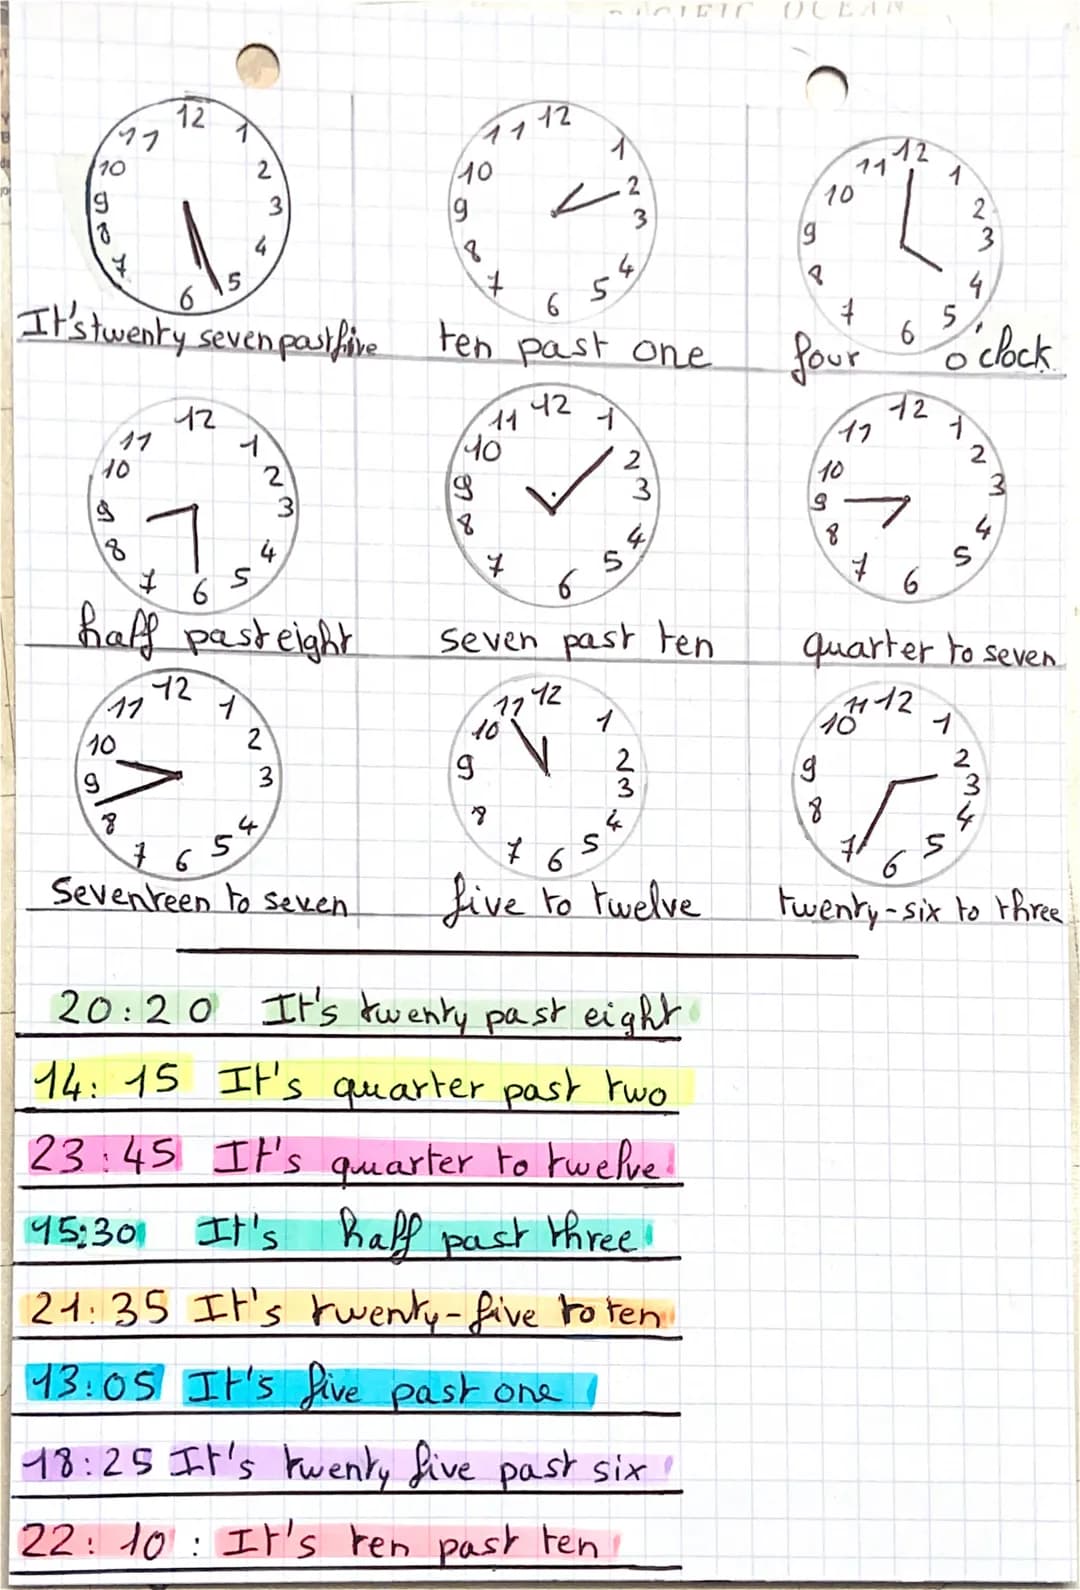 PACIFIC OCEAN
12 11 1 10 2 9 3 8 4 7 5 6
12 11 1 10 2 9 3 8 4 7 5 6
12 11 1 10 2 9 3 8 4 7 5 6
It's twenty seven past five
ten past one
four o'clock
12 11 1 10 2 9 3 8 4 7 5 6
12 11 1 10 2 9 3 8 4 7 5 6
12 11 1 10 2 9 3 8 4 7 5 6
half past eight
seven past ten
quarter to seven
12 11 1 10 2 9 3 8 4 7 5 6
12 11 1 10 2 9 3 8 4 7 5 6
12 11 1 10 2 9 3 8 4 7 5 6
Seventeen to seven
five to twelve
twenty-six to three
20:20 It's twenty past eight
14:15 It's quarter past two
23:45 It's quarter to twelve
15:30 It's half past three
21:35 It's twenty-five to ten
13:05 It's five past one
18:25 It's twenty five past six
22:10: It's ten past ten